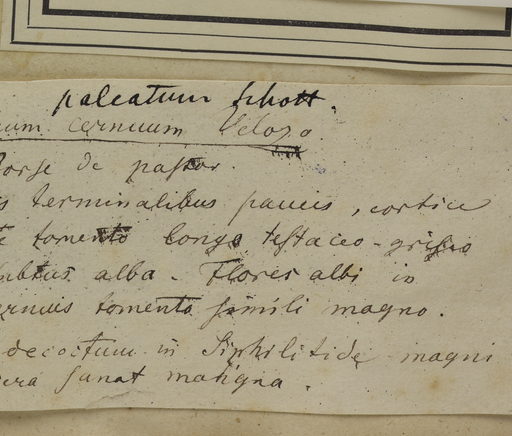 paleatum Schott.
num cernuum Velozo
Norse de pastor.
is terminalibus paucis, cortice
te tomento longo testaceo-griseo
subtus alba. Flores albi in
cernuis tomento simili magno.
decoctum in Siphilitide magni
cera sanat maligna.